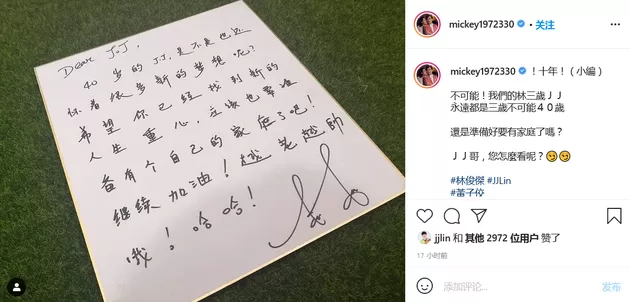 Dear JJ,
40岁的JJ,是不是也还
怀着很多新的梦想呢?
希望你已经找到新的
人生重心,应该也準
备有个自己的家庭了吧!
继续加油!越老越帅
哦!哈哈!
mickey1972330 • 关注
mickey1972330 !十年!(小編)
不可能!我們的林三歲JJ
永遠都是三歲不可能40歲
還是準備好要有家庭了嗎?
JJ哥,您怎麼看呢?😏😏
#林俊傑 #JJLin
#黃子佼
jjlin 和 其他 2972 位用户 赞了
17 小时前
添加评论...
发布